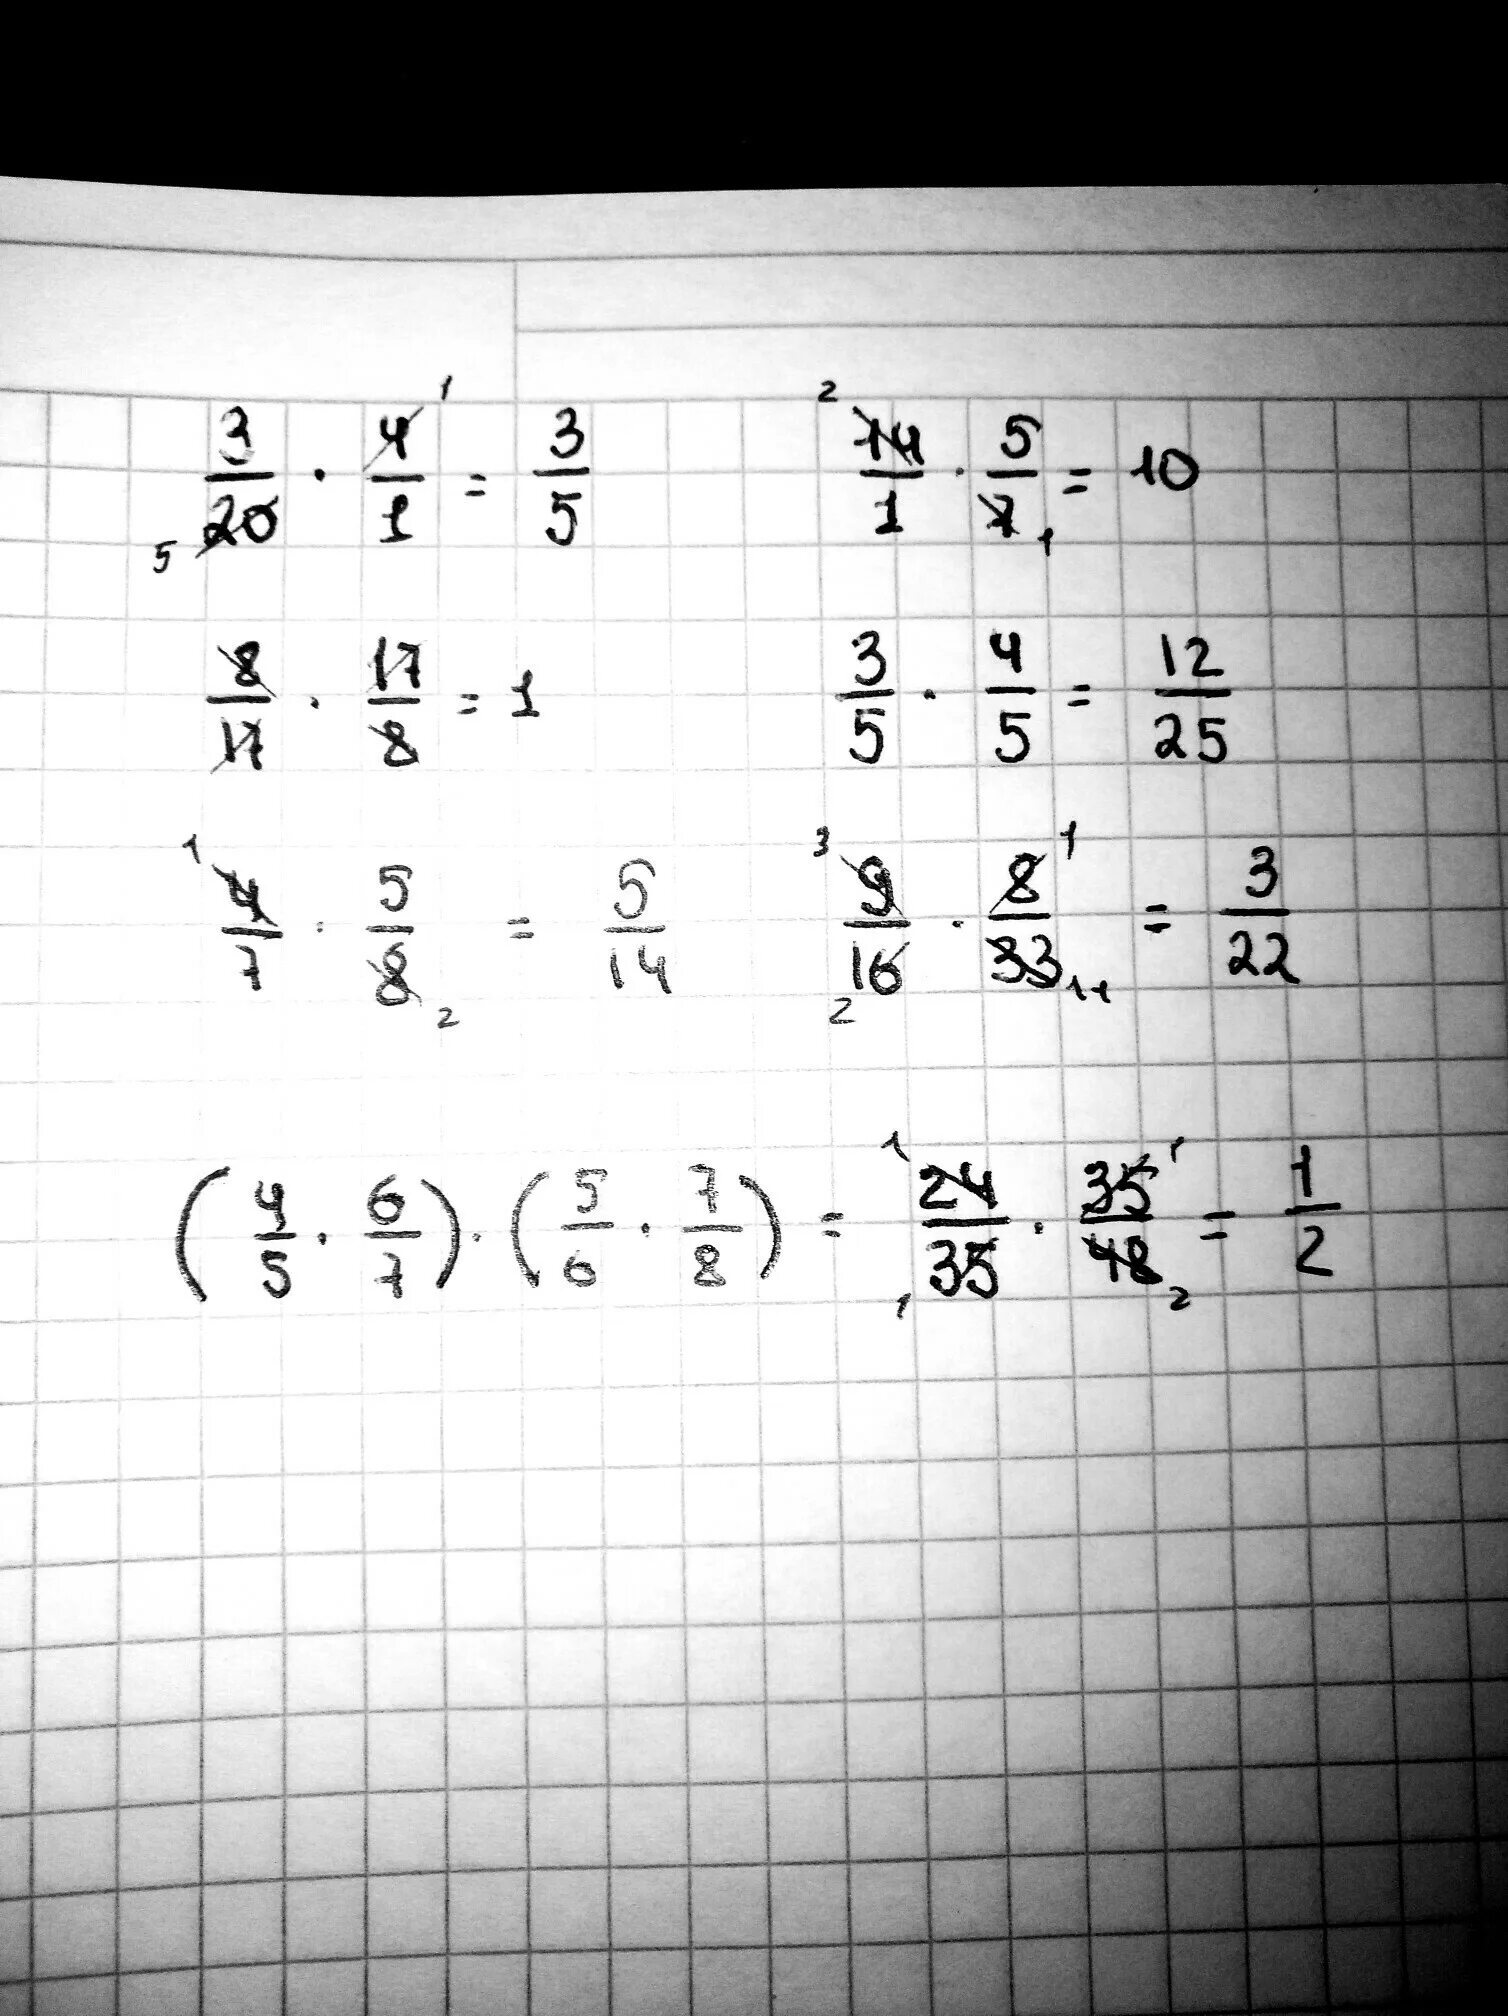 3/20 · 4/1 = 3/5    14/1 · 5/7 = 10
8/17 · 17/8 = 1    3/5 · 4/5 = 12/25
4/7 · 5/8 = 5/14    9/16 · 8/33 = 3/22
(4/5 · 6/7) · (5/6 · 7/8) = 24/35 · 35/48 = 1/2